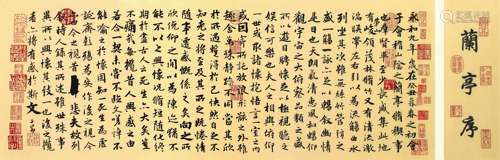 永和九年歲在癸丑暮春之初會
于會稽山陰之蘭亭脩禊事
也群賢畢至少長咸集此地
有崇山峻領茂林脩竹又有清流激
湍暎帶左右引以為流觴曲水
列坐其次雖無絲竹管弦之
盛一觴一詠亦足以暢敘幽情
是日也天朗氣清惠風和暢仰
觀宇宙之大俯察品類之盛
所以遊目騁懷足以極視聽之
娛信可樂也夫人之相與俯仰
一世或取諸懷抱悟言一室之內
或因寄所託放浪形骸之外雖
趣舍萬殊靜躁不同當其欣
於所遇蹔得於己快然自足不
知老之將至及其所之既惓情
隨事遷感慨係之矣向之所
欣俛仰之閒以為陳迹猶不
能不以之興懷況脩短隨化終
期於盡古人云死生亦大矣豈
不痛哉每攬昔人興感之由
若合一契未嘗不臨文嗟悼不
能喻之於懷固知一死生為虛
誕齊彭殤為妄作後之視今
亦由今之視昔悲夫故列
敘時人錄其所述雖世殊事
異所以興懷其致一也後之攬
者亦將有感於斯文
蘭亭序